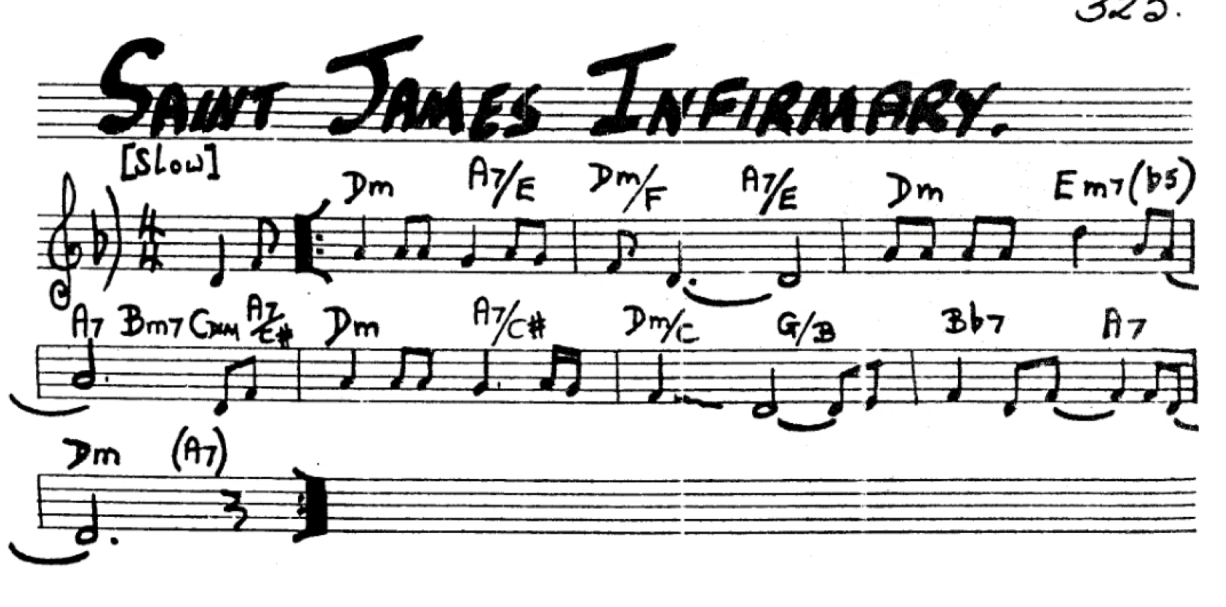 325.
SAINT JAMES INFIRMARY.
[Slow]
4
4
Dm A7/E Dm/F A7/E Dm Em7(b5)
A7 Bm7 CDIM A7/C# Dm A7/C# Dm/C G/B Bb7 A7
Dm (A7)